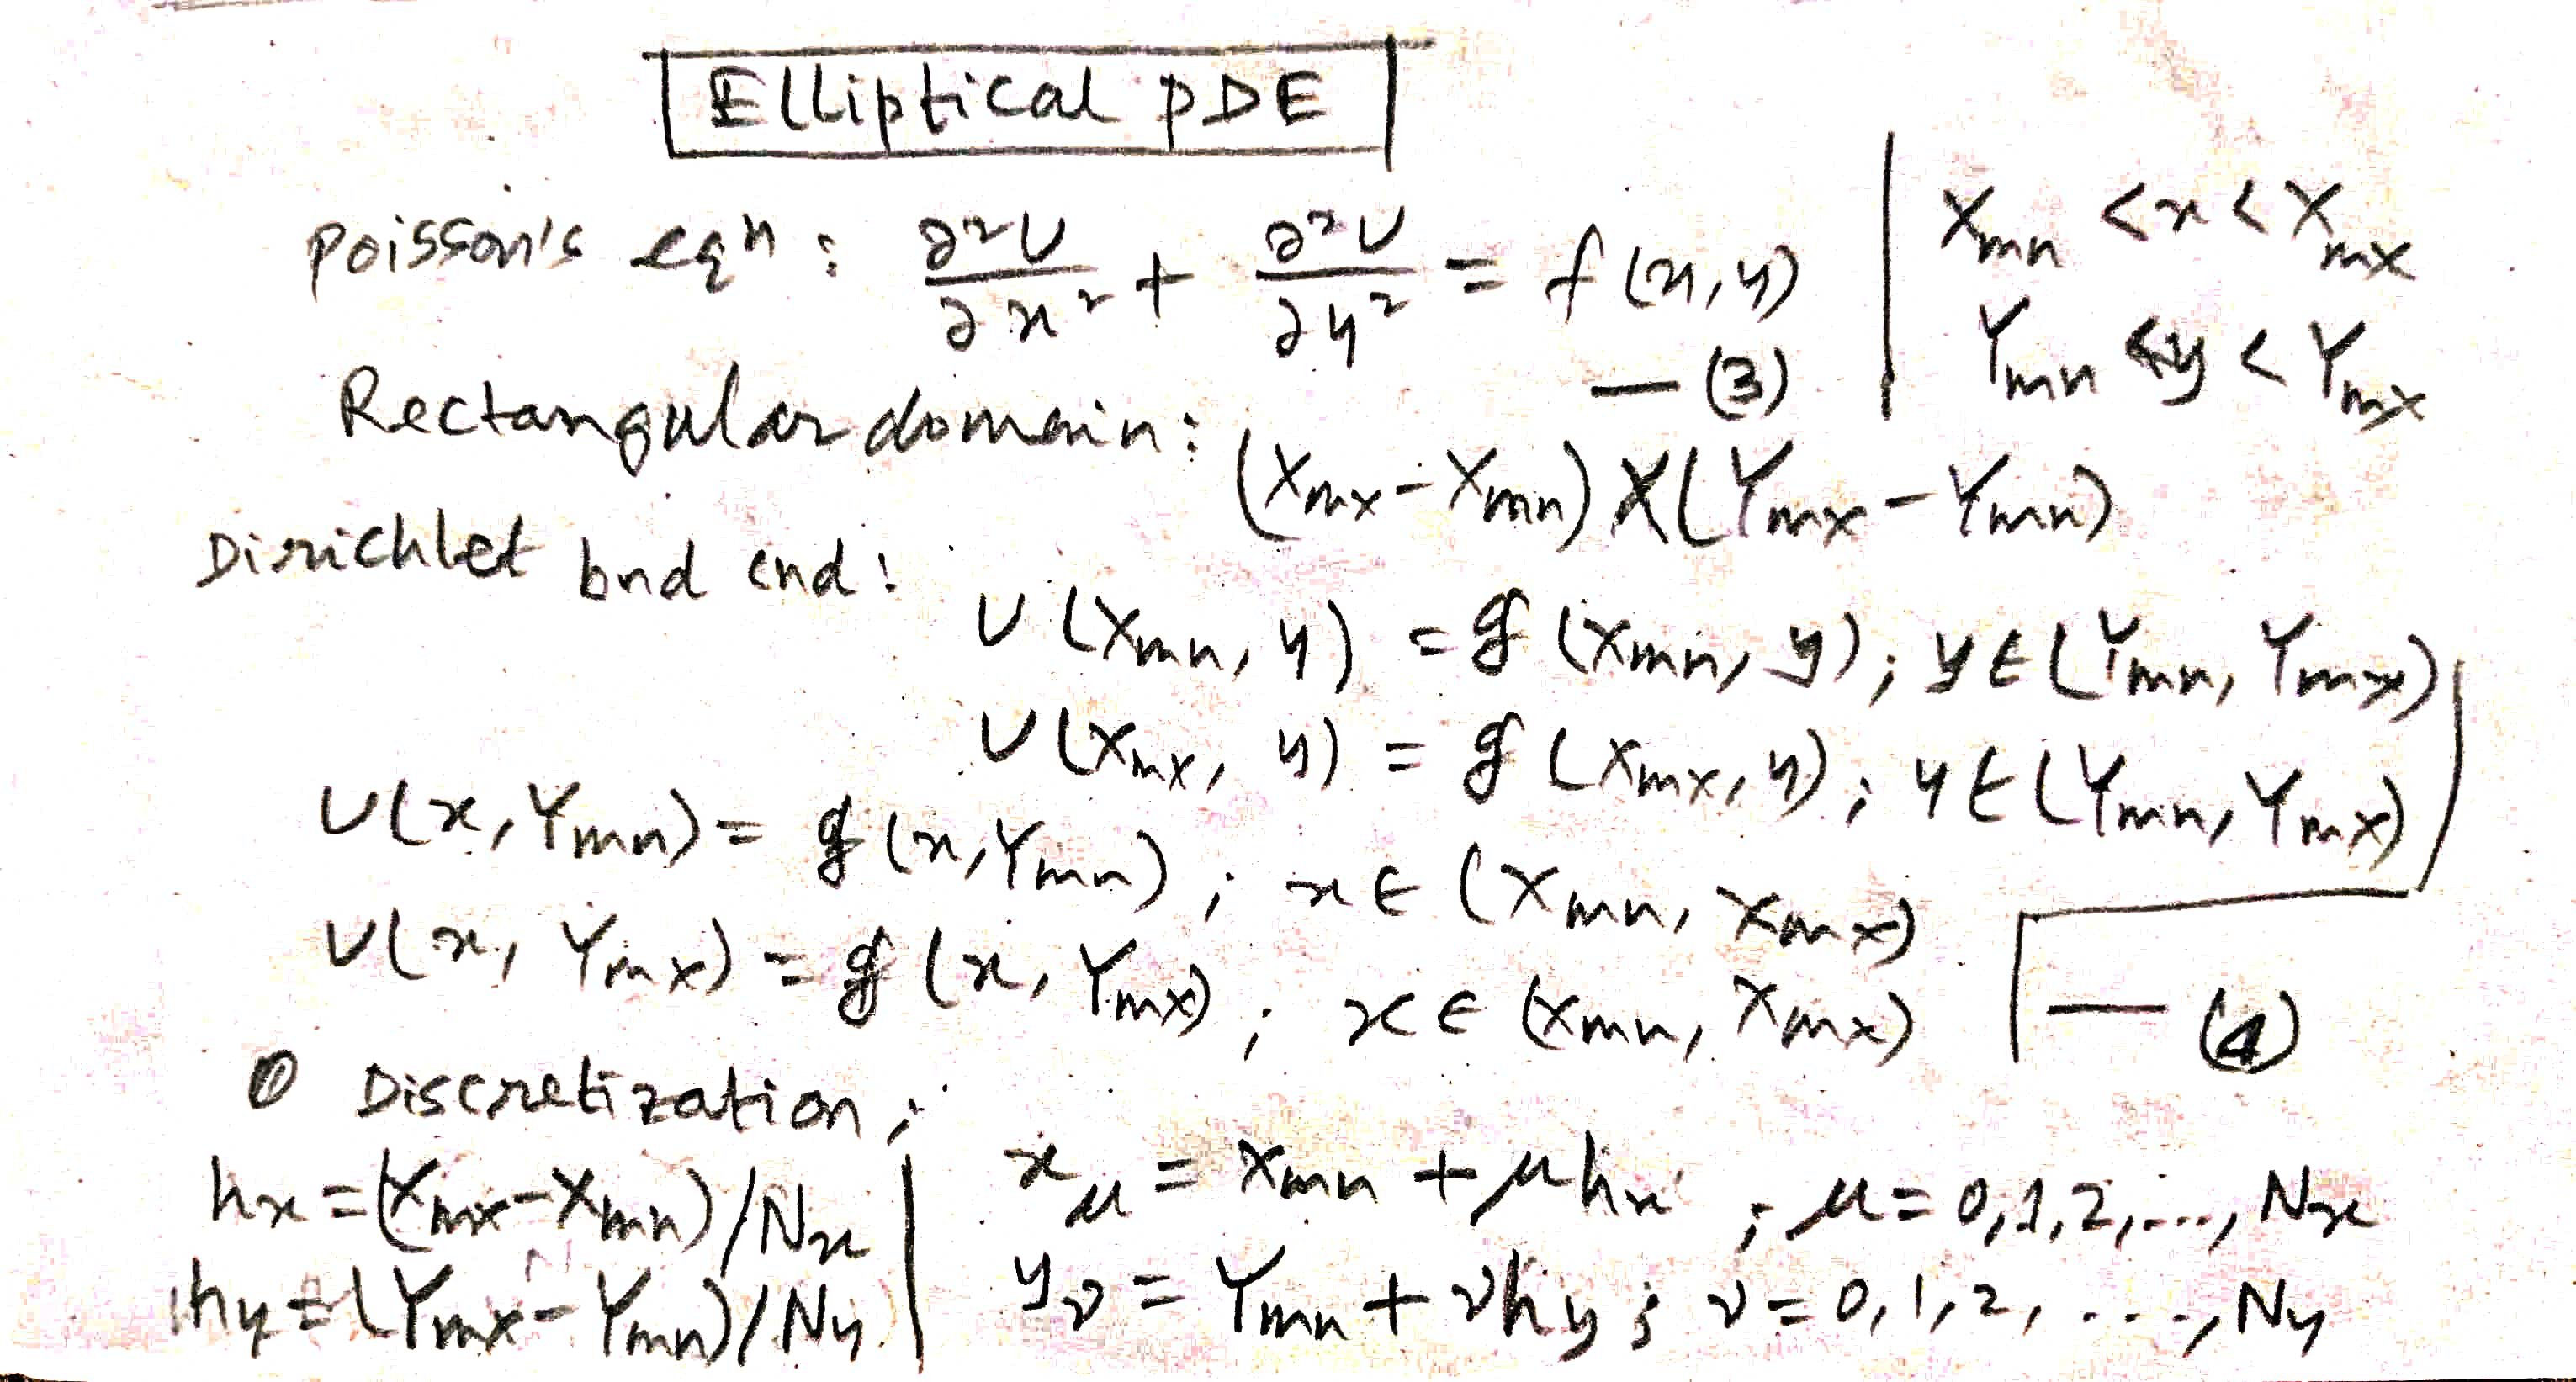 Elliptical PDE
Poisson's eqⁿ : ∂²U/∂x² + ∂²U/∂y² = f(x,y) — (3) | Xmn < x < Xmx
Ymn < y < Ymx
Rectangular domain: (Xmx - Xmn) X (Ymx - Ymn)
Dirichlet bnd cnd:
U(Xmn, y) = g(Xmn, y); y ∈ (Ymn, Ymx)
U(Xmx, y) = g(Xmx, y); y ∈ (Ymn, Ymx)
U(x, Ymn) = g(x, Ymn); x ∈ (Xmn, Xmx)
U(x, Ymx) = g(x, Ymx); x ∈ (Xmn, Xmx) — (4)
Discretization:
hx = (Xmx - Xmn)/Nx | xμ = Xmn + μhx ; μ = 0,1,2,...., Nx
hy = (Ymx - Ymn)/Ny | yν = Ymn + νhy ; ν = 0,1,2, ...., Ny